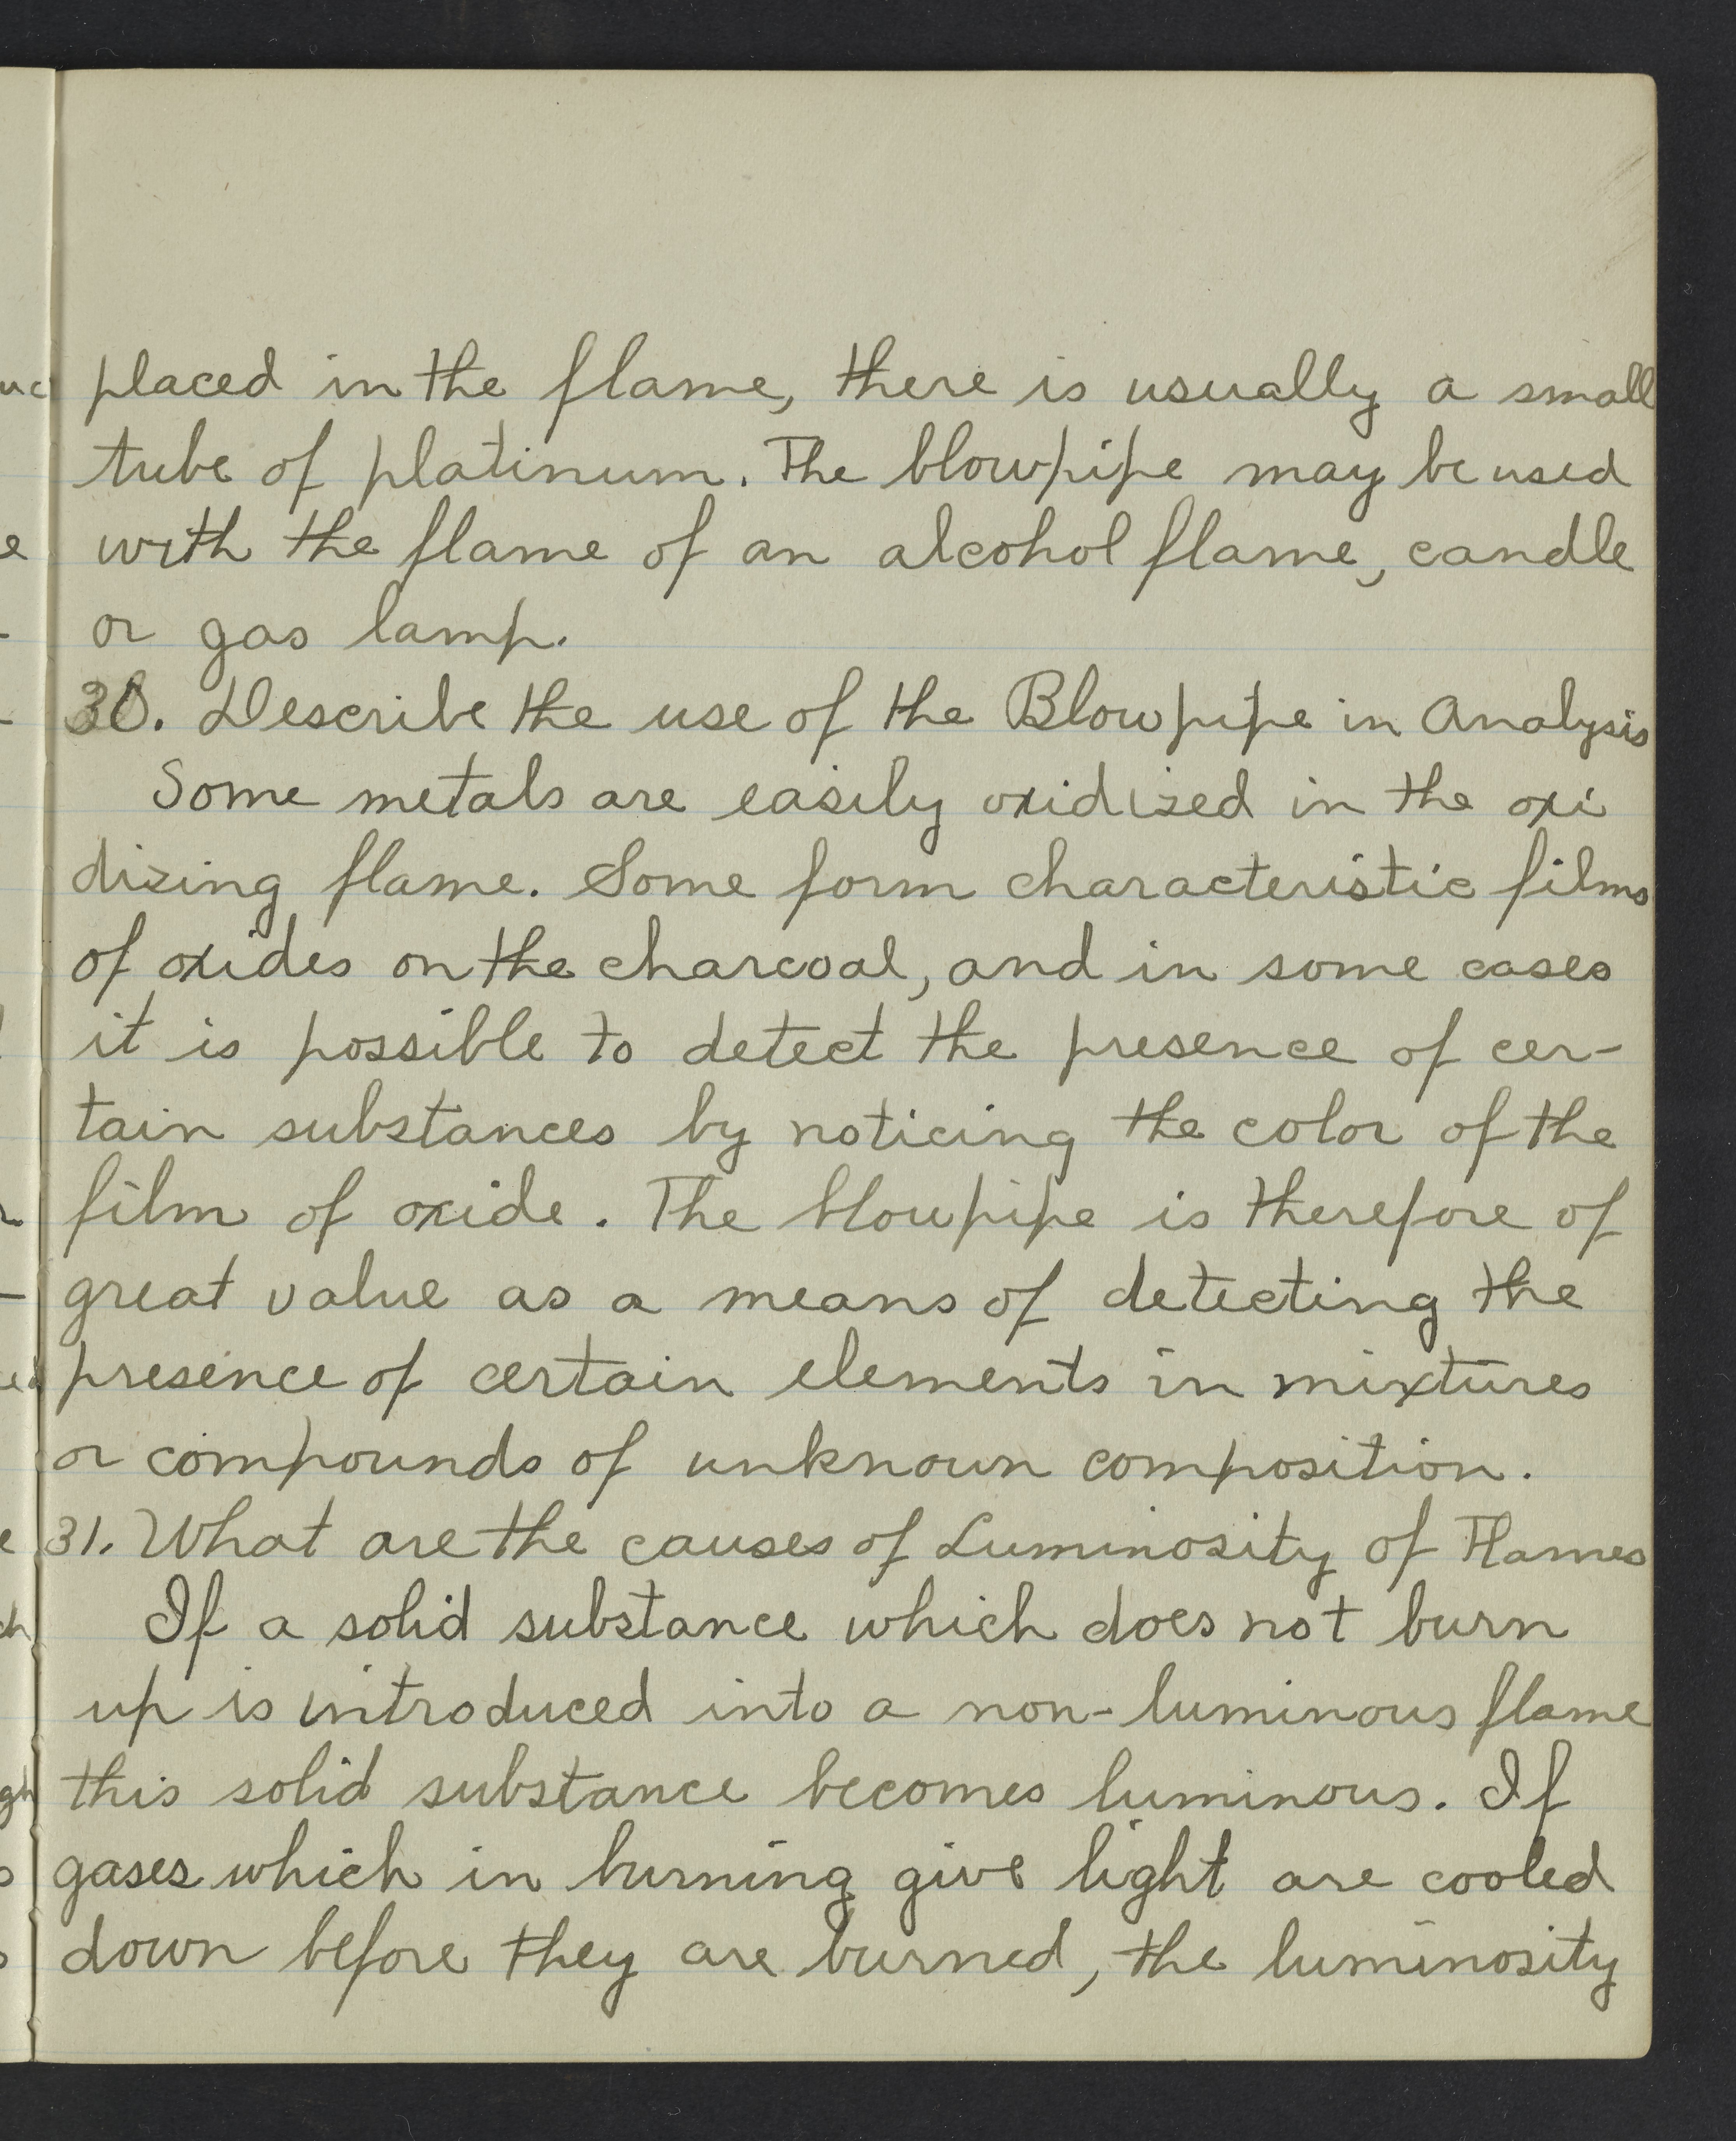 placed in the flame, there is usually a small
tube of platinum. The blowpipe may be used
with the flame of an alcohol flame, candle
or gas lamp.
30. Describe the use of the Blowpipe in Analysis
Some metals are easily oxidized in the oxi
dizing flame. Some form characteristic films
of oxides on the charcoal, and in some cases
it is possible to detect the presence of cer-
tain substances by noticing the color of the
film of oxide. The blowpipe is therefore of
great value as a means of detecting the
presence of certain elements in mixtures
or compounds of unknown composition.
31. What are the causes of Luminosity of Flames
If a solid substance which does not burn
up is introduced into a non-luminous flame
this solid substance becomes luminous. If
gases which in burning give light are cooled
down before they are burned, the luminosity